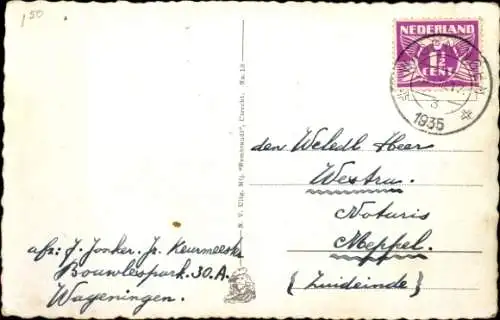 1.50
NEDERLAND
1½
CENT
3
1935
den Weledl Heer
Westra
Notaris
Meppel.
(Zuideinde)
afz: J. Jonker. Jz. Keurmeester
Bouwlespark. 30.A.
Wageningen.
N. V. Uitg. Mij. "Rembrandt", Utrecht. No. 18